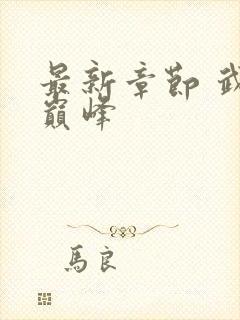 最新章節 武
巔峰
馬良